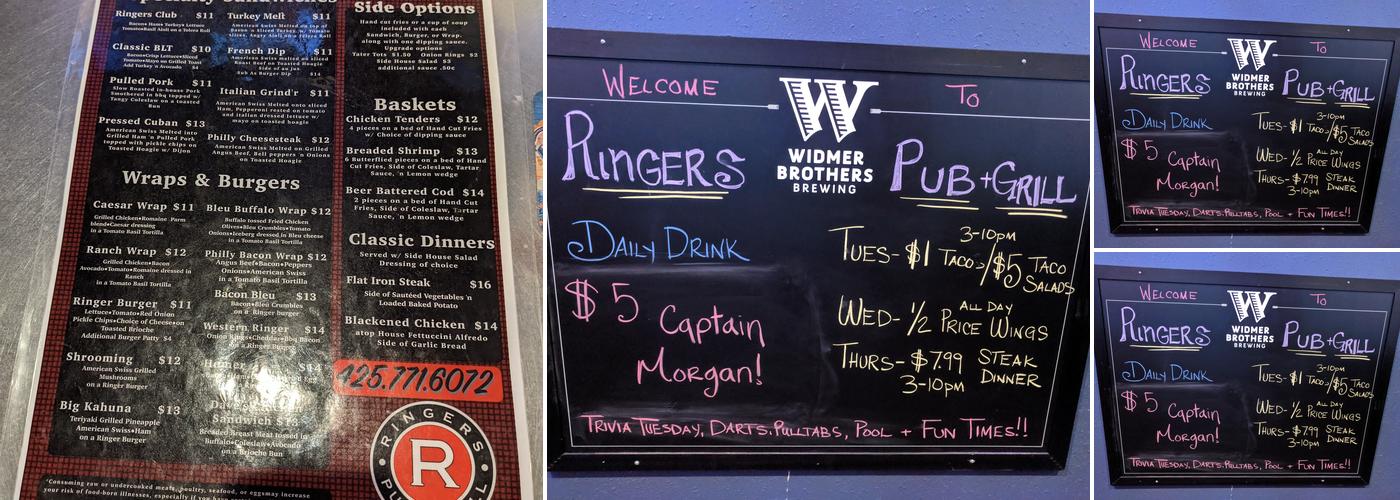 Specialty Sandwiches
Ringers Club $11
Bacon•Hams Turkey•Lettuce
Tomato•Basil Aioli on a Telera Roll
Classic BLT $10
Bacon•Crisp Lettuce•Sliced
Tomato•Mayo on Grilled Toast
Add Turkey 'n Avocado $4
Pulled Pork $11
Slow Roasted in-house Pork
Smothered in bbq topped w/
Tangy Coleslaw on a toasted
Bun
Pressed Cuban $13
American Swiss Melted into
Grilled Ham 'n Pulled Pork
topped with pickle chips on
Toasted Hoagie w/ Dijon
Turkey Melt $11
American Swiss Melted on top of
Bacon 'n Sliced Turkey w/ Tomato
slices, Angry Aioli on a Telera Roll
French Dip $11
American Swiss melted on sliced
Roast Beef on Toasted Hoagie
Side of au Jus
Sub As Burger Dip $14
Italian Grind'r $11
American Swiss Melted onto sliced
Ham, Pepperoni rested on tomato
and italian dressed lettuce w/
mayo on toasted hoagie
Philly Cheesesteak $12
American Swiss Melted on Grilled
Angus Beef, Bell peppers 'n Onions
on Toasted Hoagie
Wraps & Burgers
Caesar Wrap $11
Grilled Chicken•Romaine Parm
blend•Caesar dressing
in a Tomato Basil Tortilla
Ranch Wrap $12
Grilled Chicken•Bacon
Avocado•Tomato•Romaine dressed in
Ranch
in a Tomato Basil Tortilla
Ringer Burger $11
Lettuce•Tomato•Red Onion
Pickle Chips•Choice of Cheese•on
Toasted Brioche
Additional Burger Patty $4
Shrooming $12
American Swiss Grilled
Mushrooms
on a Ringer Burger
Big Kahuna $13
Teriyaki Grilled Pineapple
American Swiss•Ham
on a Ringer Burger
Bleu Buffalo Wrap $12
Buffalo tossed Fried Chicken
Olives•Bleu Crumbles•Tomato
Onions•Iceberg dressed in Bleu cheese
in a Tomato Basil Tortilla
Philly Bacon Wrap $12
Angus Beef•Bacon•Peppers
Onions•American Swiss
in a Tomato Basil Tortilla
Bacon Bleu $13
Bacon•Bleu Crumbles
on a Ringer burger
Western Ringer $14
Onion Rings•Cheddar•Bbq Bacon
on a Ringer Burger
Homer $14
Dave's
Sandwich $13
Breaded Breast Meat tossed in
Buffalo•Coleslaw•Avocado
on a Brioche Bun
Side Options
Hand cut fries or a cup of soup
included with each
Sandwich, Burger, or Wrap.
along with one dipping sauce.
Upgrade options
Tater Tots $1.50 Onion Rings $2
Side House Salad $3
additional sauce .50c
Baskets
Chicken Tenders $12
4 pieces on a bed of Hand Cut Fries
w/ Choice of dipping sauce
Breaded Shrimp $13
6 Butterflied pieces on a bed of Hand
Cut Fries, Side of Coleslaw, Tartar
Sauce, 'n Lemon wedge
Beer Battered Cod $14
2 pieces on a bed of Hand Cut
Fries, Side of Coleslaw, Tartar
Sauce, 'n Lemon wedge
Classic Dinners
Served w/ Side House Salad
Dressing of choice
Flat Iron Steak $16
Side of Sautéed Vegetables 'n
Loaded Baked Potato
Blackened Chicken $14
atop House Fettuccini Alfredo
Side of Garlic Bread
425.771.6072
RINGERS
R
*Consuming raw or undercooked meats, poultry, seafood, or eggsmay increase
your risk of food-born illnesses, especially if you have
WELCOME TO
RINGERS PUB + GRILL
W
WIDMER
BROTHERS
BREWING
DAILY DRINK
$5 Captain
Morgan!
3-10pm
TUES- $1 TACO's/$5 TACO
SALADS
ALL DAY
WED- 1/2 PRICE WINGS
THURS- $7.99 STEAK
3-10pm DINNER
TRIVIA TUESDAY, DARTS.PULLTABS, POOL + FUN TIMES!!
WELCOME TO
RINGERS PUB + GRILL
W
WIDMER
BROTHERS
BREWING
DAILY DRINK
$5 Captain
Morgan!
3-10pm
TUES- $1 TACO's/$5 TACO
SALADS
ALL DAY
WED- 1/2 PRICE WINGS
THURS- $7.99 STEAK
3-10pm DINNER
TRIVIA TUESDAY, DARTS.PULLTABS, POOL + FUN TIMES!!
WELCOME TO
RINGERS PUB + GRILL
W
WIDMER
BROTHERS
BREWING
DAILY DRINK
$5 Captain
Morgan!
3-10pm
TUES- $1 TACO's/$5 TACO
SALADS
ALL DAY
WED- 1/2 PRICE WINGS
THURS- $7.99 STEAK
3-10pm DINNER
TRIVIA TUESDAY, DARTS.PULLTABS, POOL + FUN TIMES!!